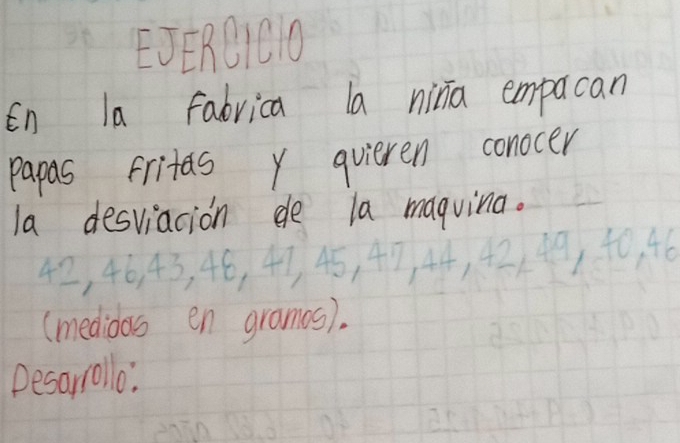 EJERCICIO
En la Fabrica la niña empacan
papas fritas y quieren conocer
la desviación de la maquina.
42, 46, 43, 46, 41, 45, 47, 44, 42, 49, 40, 46
(medidas en gramos).
Desarrollo: